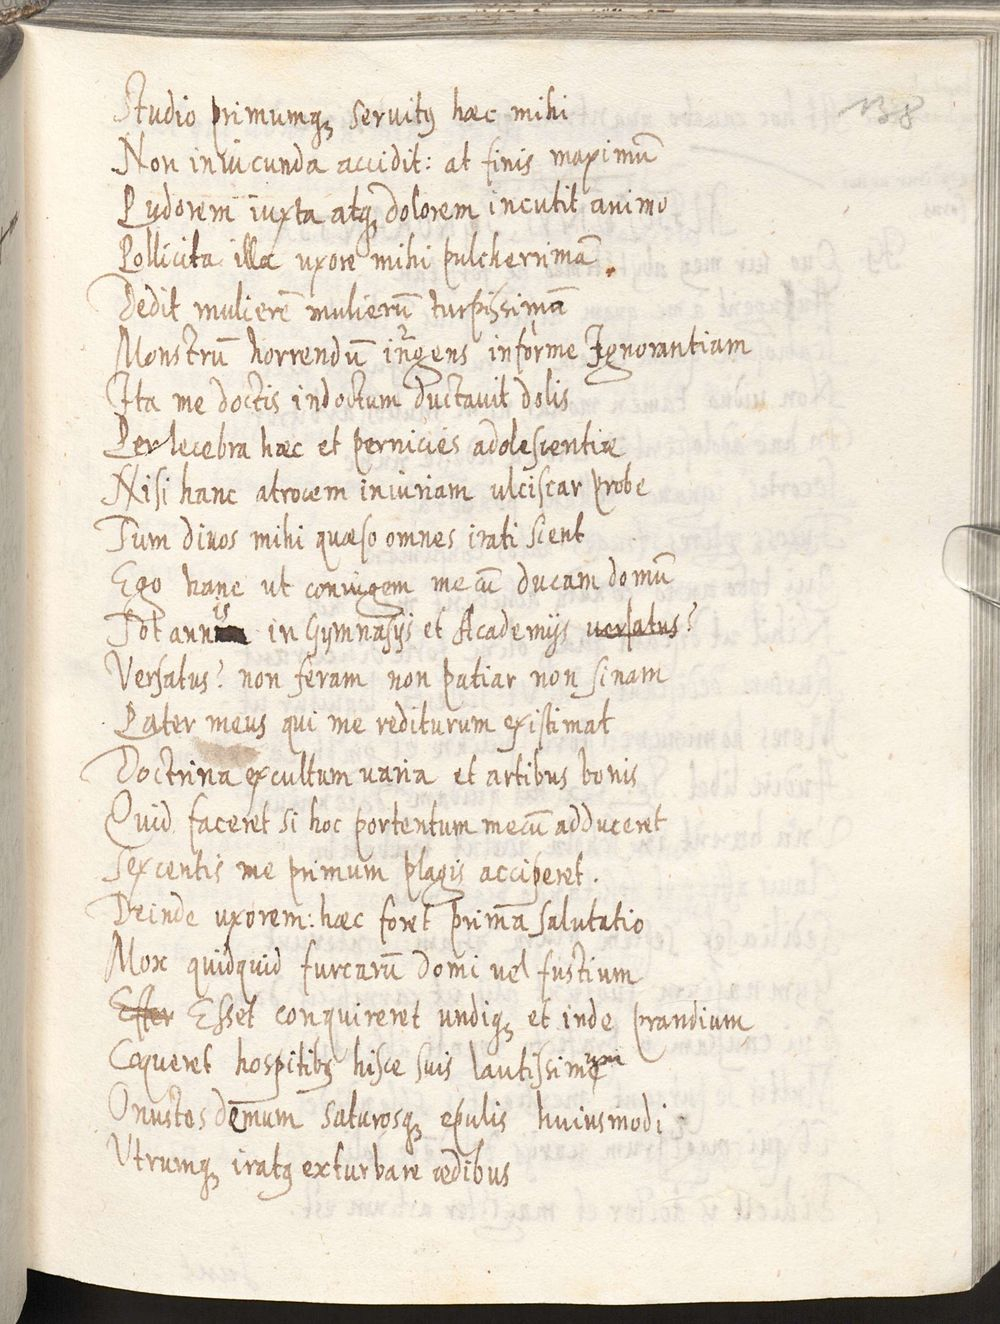 138
Studio primumqꝫ seruitꝰ hæc mihi
Non iniucunda accidit: at finis maximũ
Pudorem iuxta atqꝫ dolorem incutit animo
Pollicita illa uxorẽ mihi pulcherrimã
Dedit mulierẽ mulierũ turpissimã
Monstrũ horrendũ ingens informe Ignorantiam
Ita me doctis indoctum ductauit dolis
Perlecebra hæc et pernicies adolescentiæ
Nisi hanc atrocem iniuriam ulciscar probe
Tum diuos mihi quæso omnes irati sient
Ego hanc ut coniugem mecũ ducam domũ
Tot annis in Gymnasijs et Academijs uersatus?
Versatus? non feram non patiar non sinam
Pater meus qui me rediturum existimat
Doctrina excultum uaria et artibus bonis
Quid faceret si hoc portentum mecũ adduceret
Sexcentis me primum plagis acciperet.
Deinde uxorem: hæc foret prima salutatio
Mox quidquid furcarũ domi uel fustium
Esset conquireret undiqꝫ et inde prandium
Coqueret hospitibꝰ hisce suis lautissimum
Onustos demum saturosqꝫ epulis huiusmodi
Vtrumqꝫ iratꝰ exturbare ædibus